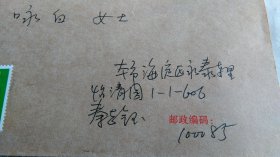 咏白 女士
本市海淀区永泰里
怡清园1-1-606
秦 钰
邮政编码:
100085